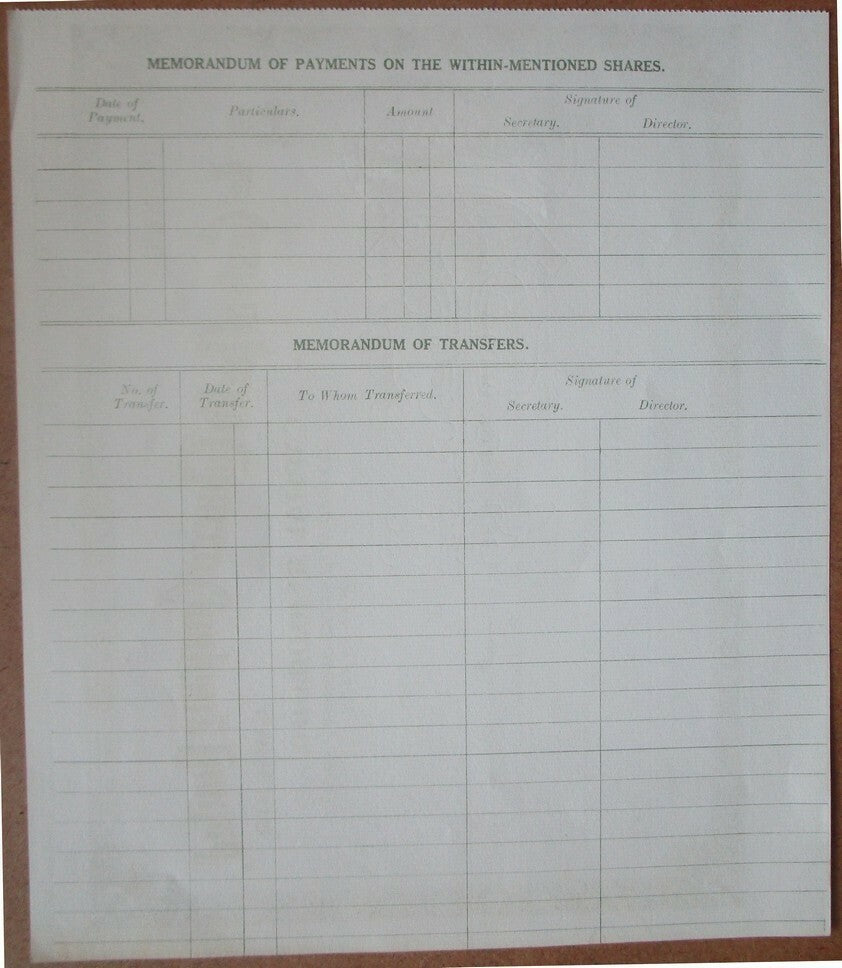 MEMORANDUM OF PAYMENTS ON THE WITHIN-MENTIONED SHARES.
Date of Payment.
Particulars.
Amount
Signature of
Secretary.
Director.
MEMORANDUM OF TRANSFERS.
No. of Transfer.
Date of Transfer.
To Whom Transferred.
Signature of
Secretary.
Director.